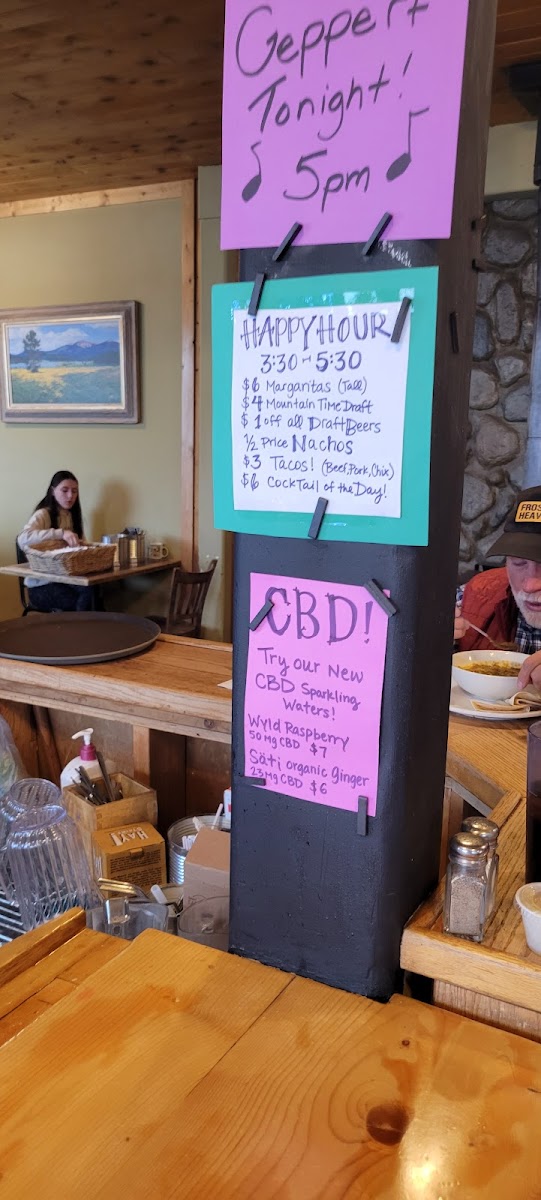 Geppert
Tonight!
5pm
HAPPY HOUR
3:30 - 5:30
$6 Margaritas (Tall)
$4 Mountain Time Draft
$1 off all Draft Beers
1/2 Price Nachos
$3 Tacos! (Beef, Pork, Chix)
$6 Cocktail of the Day!
CBD!
Try our New
CBD Sparkling
Waters!
Wyld Raspberry
50 Mg CBD $7
Säti organic Ginger
23 Mg CBD $6
FROS
HEAV